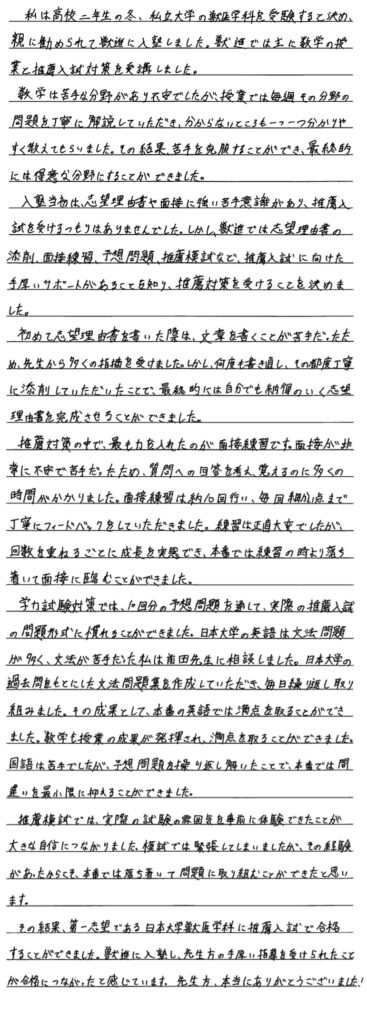 私は高校二年生の冬、私立大学の獣医学科を受験すると決め、
親に勧められて獣進に入塾しました。獣進では主に数学の授
業と推薦入試対策を受講しました。
数学は苦手な分野があり不安でしたが、授業では毎週その分野の
問題を丁寧に解説していただき、分からないところも一つ一つ分かりや
すく教えてもらいました。その結果、苦手を克服することができ、最終的
には得意な分野にすることができました。
入塾当初は、志望理由書や面接に強い苦手意識があり、推薦入
試を受けるつもりはありませんでした。しかし、獣進では志望理由書の
添削、面接練習、予想問題、推薦模試など、推薦入試に向けた
手厚いサポートがあることを知り、推薦対策を受けることを決めま
した。
初めて志望理由書を書いた際は、文章を書くことが苦手だったた
め、先生から多くの指摘を受けました。しかし、何度も書き直し、その都度丁寧
に添削していただいたことで、最終的には自分でも納得のいく志望
理由書を完成させることができました。
推薦対策の中で、最も力を入れたのが面接練習です。面接が非
常に不安で苦手だったため、質問への回答を考え、覚えるのに多くの
時間がかかりました。面接練習は約10回行い、毎回細かい点まで
丁寧にフィードバックをしていただきました。練習は正直大変でしたが、
回数を重ねるごとに成長を実感でき、本番では練習の時より落ち
着いて面接に臨むことができました。
学力試験対策では、10回分の予想問題を通して、実際の推薦入試
の問題形式に慣れることができました。日本大学の英語は文法問題
が多く、文法が苦手だった私は前田先生に相談しました。日本大学の
過去問をもとにした文法問題集を作成していただき、毎日繰り返し取り
組みました。その成果として、本番の英語では満点を取ることができ
ました。数学も授業の成果が発揮され、満点を取ることができました。
国語は苦手でしたが、予想問題を繰り返し解いたことで、本番では間
違いを最小限に抑えることができました。
推薦模試では、実際の試験の雰囲気を事前に体験できたことが
大きな自信につながりました。模試では緊張してしまいましたが、その経験
があったからこそ、本番では落ち着いて問題に取り組むことができたと思い
ます。
その結果、第一志望である日本大学獣医学科に推薦入試で合格
することができました。獣進に入塾し、先生方の手厚い指導を受けられたこと
が合格につながったと感じています。先生方、本当にありがとうございました!